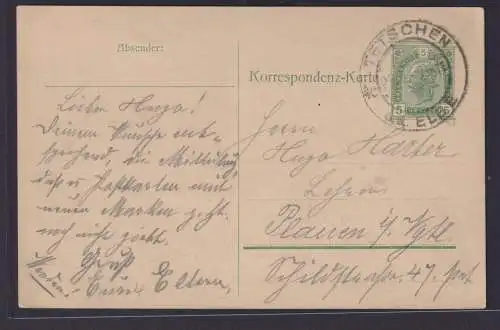 Absender:
Korrespondenz-Karte
TETSCHEN
ELBE
5
5
Lieber Hugo!
Deinem Wunsche ent-
sprechend, die Mitteilung
daß Postkarten mit
neuen Marken
noch
Gruß
Eure Eltern.
Herrn
Hugo Harter
Plauen i/ Vgtl.
Schildstraße 47. part